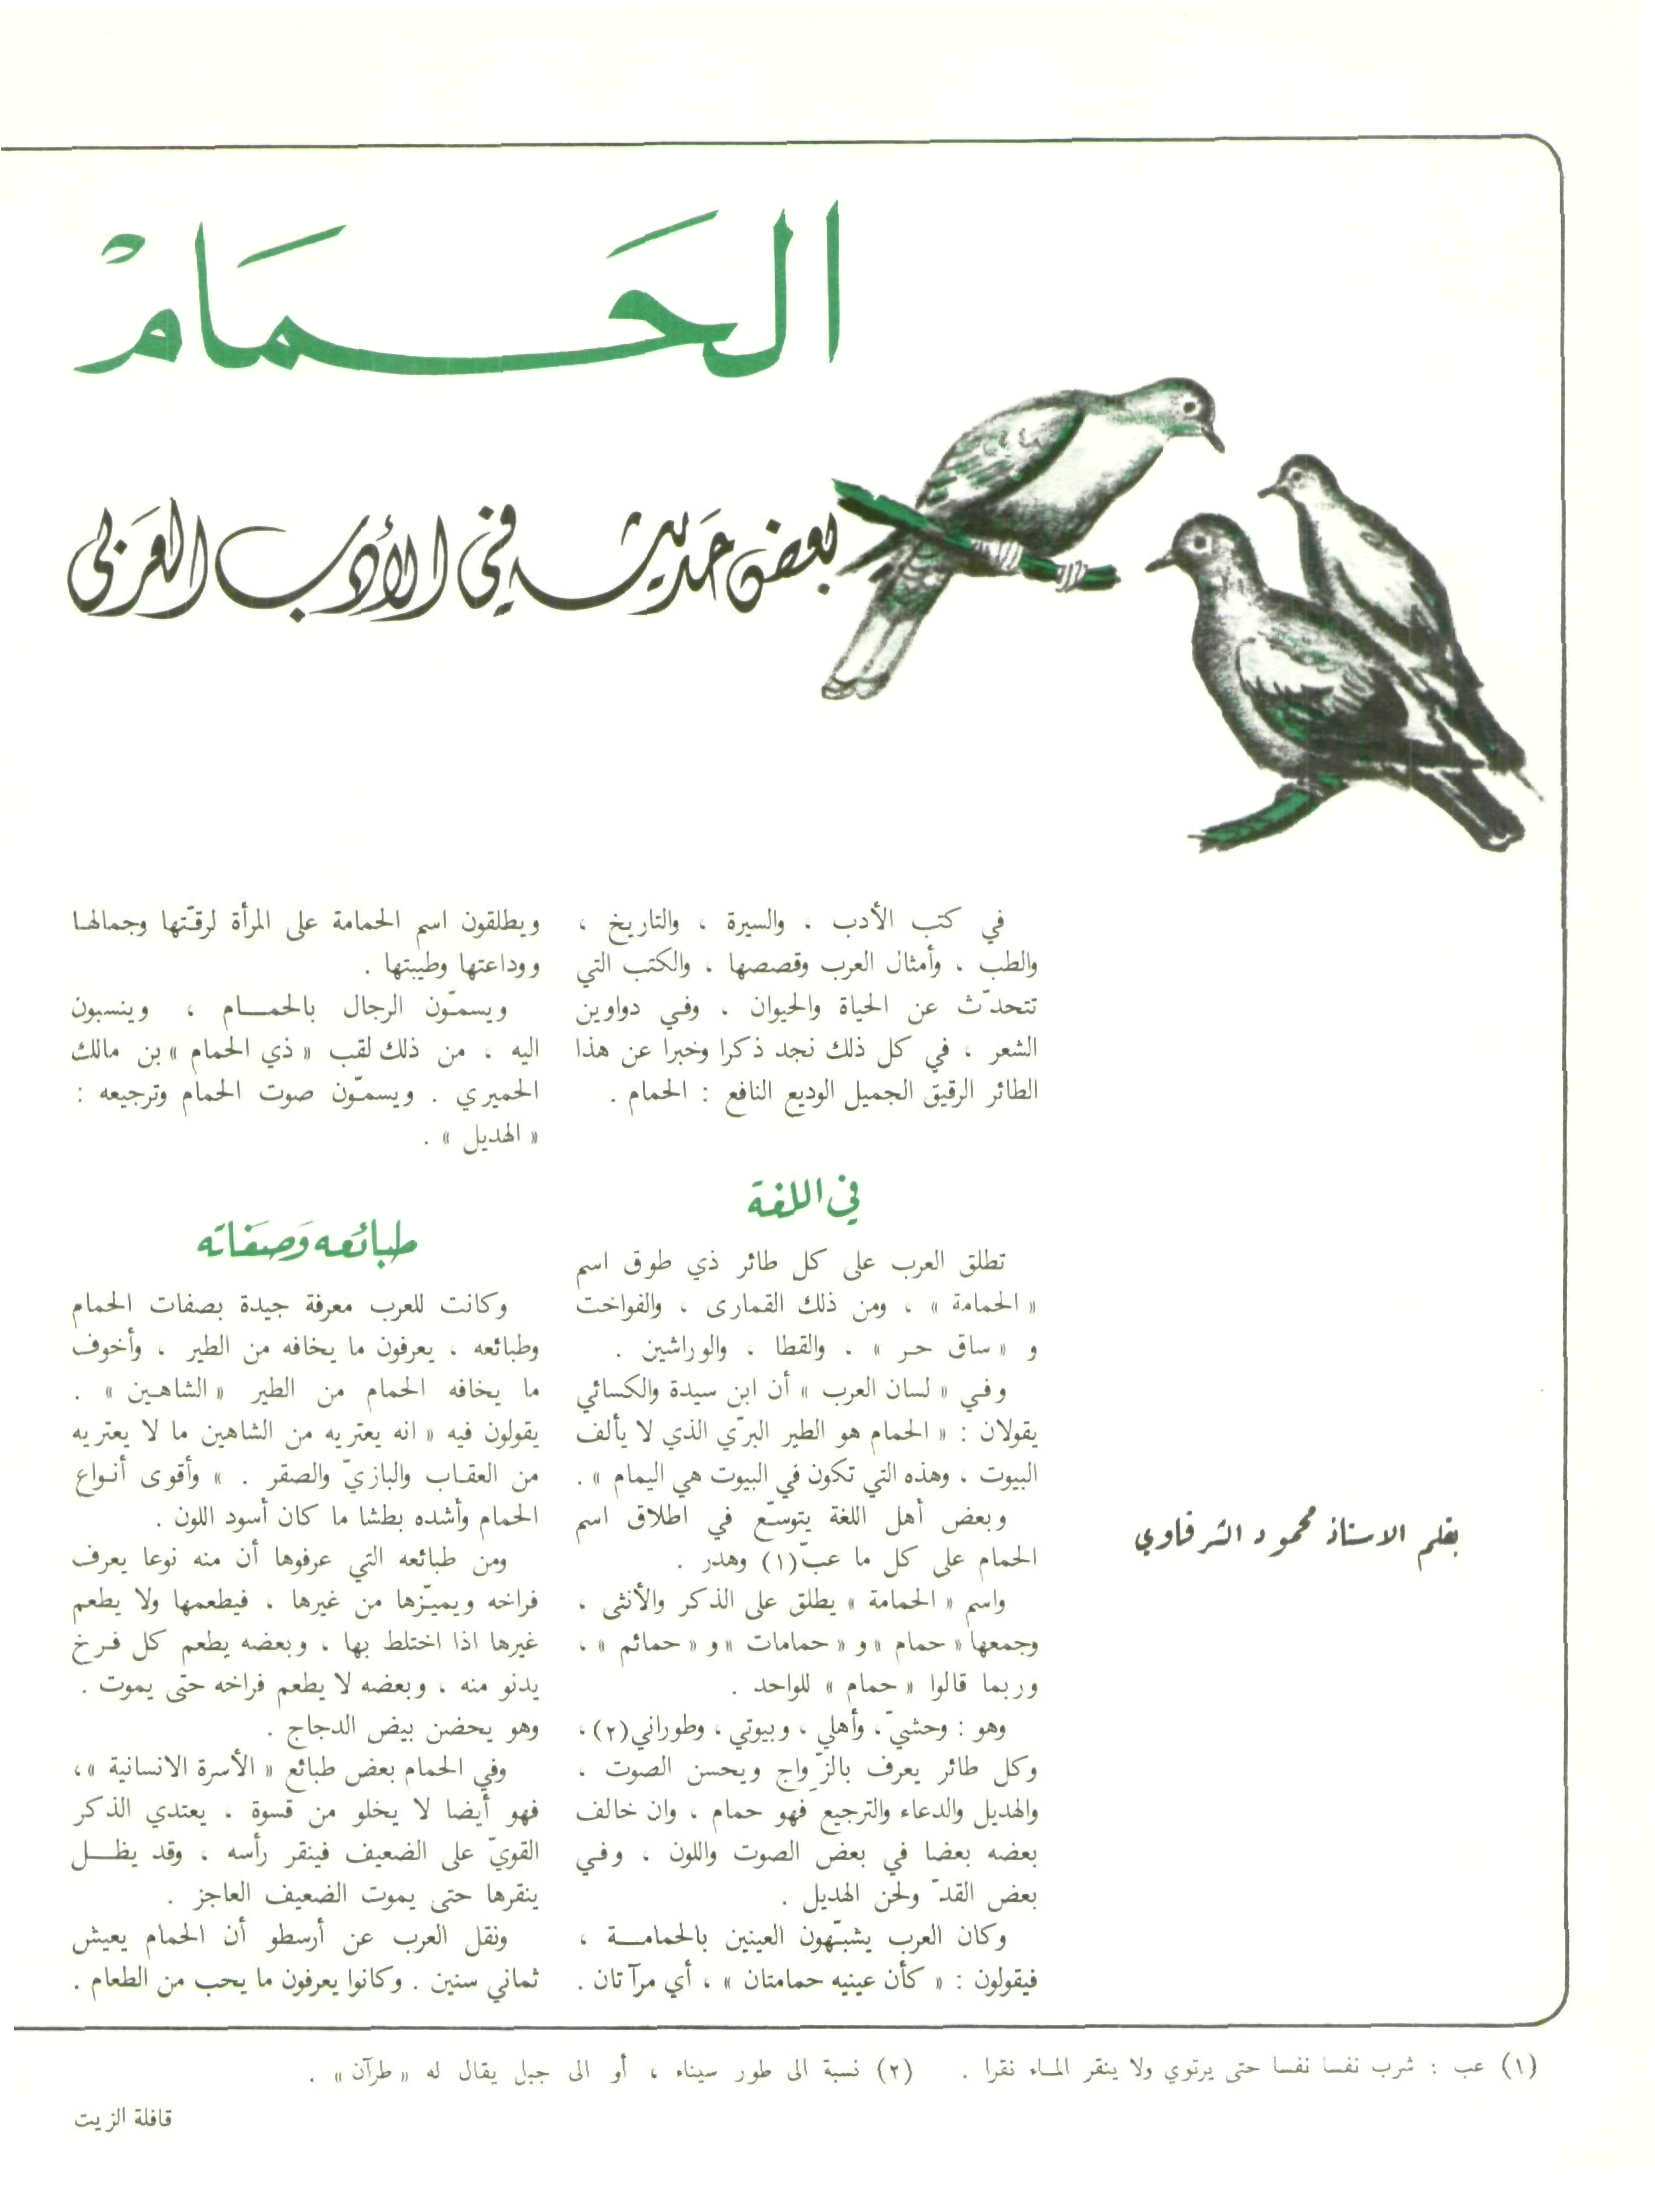 الحَمَامْ
بعض حَديث في الأدب العَربي
بقلم الاستاذ محمود الشرقاوي
في كتب الأدب ، والسيرة ، والتاريخ ،
والطب ، وأمثال العرب وقصصها ، والكتب التي
تتحدّث عن الحياة والحيوان ، وفي دواوين
الشعر ، في كل ذلك نجد ذكرا وخبرا عن هذا
الطائر الرقيق الجميل الوديع النافع : الحمام .
في اللغة
تطلق العرب على كل طائر ذي طوق اسم
« الحمامة » ، ومن ذلك القمارى ، والفواخت
و « ساق حر » ، والقطا ، والوراشين .
وفي « لسان العرب » أن ابن سيدة والكسائي
يقولان : « الحمام هو الطير البرّي الذي لا يألف
البيوت ، وهذه التي تكون في البيوت هي اليمام » .
وبعض أهل اللغة يتوسّع في اطلاق اسم
الحمام على كل ما عبّ(١) وهدر .
واسم « الحمامة » يطلق على الذكر والأنثى ،
وجمعها « حمام » و « حمامات » و « حمائم » ،
وربما قالوا « حمام » للواحد .
وهو : وحشيّ ، وأهلي ، وبيوتي ، وطوراني(٢) ،
وكل طائر يعرف بالزّواج ويحسن الصوت ،
والهديل والدعاء والترجيع فهو حمام ، وان خالف
بعضه بعضا في بعض الصوت واللون ، وفي
بعض القدّ ولحن الهديل .
وكان العرب يشبّهون العينين بالحمامة ،
فيقولون : « كأن عينيه حمامتان » ، أي مرآتان .
ويطلقون اسم الحمامة على المرأة لرقّتها وجمالها
ووداعتها وطيبتها .
ويسمّون الرجال بالحمام ، وينسبون
اليه ، من ذلك لقب « ذي الحمام » بن مالك
الحميري . ويسمّون صوت الحمام وترجيعه :
« الهديل » .
طبائعه وَصفاته
وكانت للعرب معرفة جيدة بصفات الحمام
وطبائعه ، يعرفون ما يخافه من الطير ، وأخوف
ما يخافه الحمام من الطير « الشاهين » .
يقولون فيه « انه يعتريه من الشاهين ما لا يعتريه
من العقاب والبازيّ والصقر . » وأقوى أنواع
الحمام وأشده بطشا ما كان أسود اللون .
ومن طبائعه التي عرفوها أن منه نوعا يعرف
فراخه ويميّزها من غيرها ، فيطعمها ولا يطعم
غيرها اذا اختلط بها ، وبعضه يطعم كل فرخ
يدنو منه ، وبعضه لا يطعم فراخه حتى يموت .
وهو يحضن بيض الدجاج .
وفي الحمام بعض طبائع « الأسرة الانسانية » ،
فهو أيضا لا يخلو من قسوة ، يعتدي الذكر
القويّ على الضعيف فينقر رأسه ، وقد يظل
ينقرها حتى يموت الضعيف العاجز .
ونقل العرب عن أرسطو أن الحمام يعيش
ثماني سنين . وكانوا يعرفون ما يحب من الطعام .
(١) عب : شرب نفسا نفسا حتى يرتوي ولا ينقر الماء نقرا . (٢) نسبة الى طور سيناء ، أو الى جبل يقال له « طرآن » .
قافلة الزيت